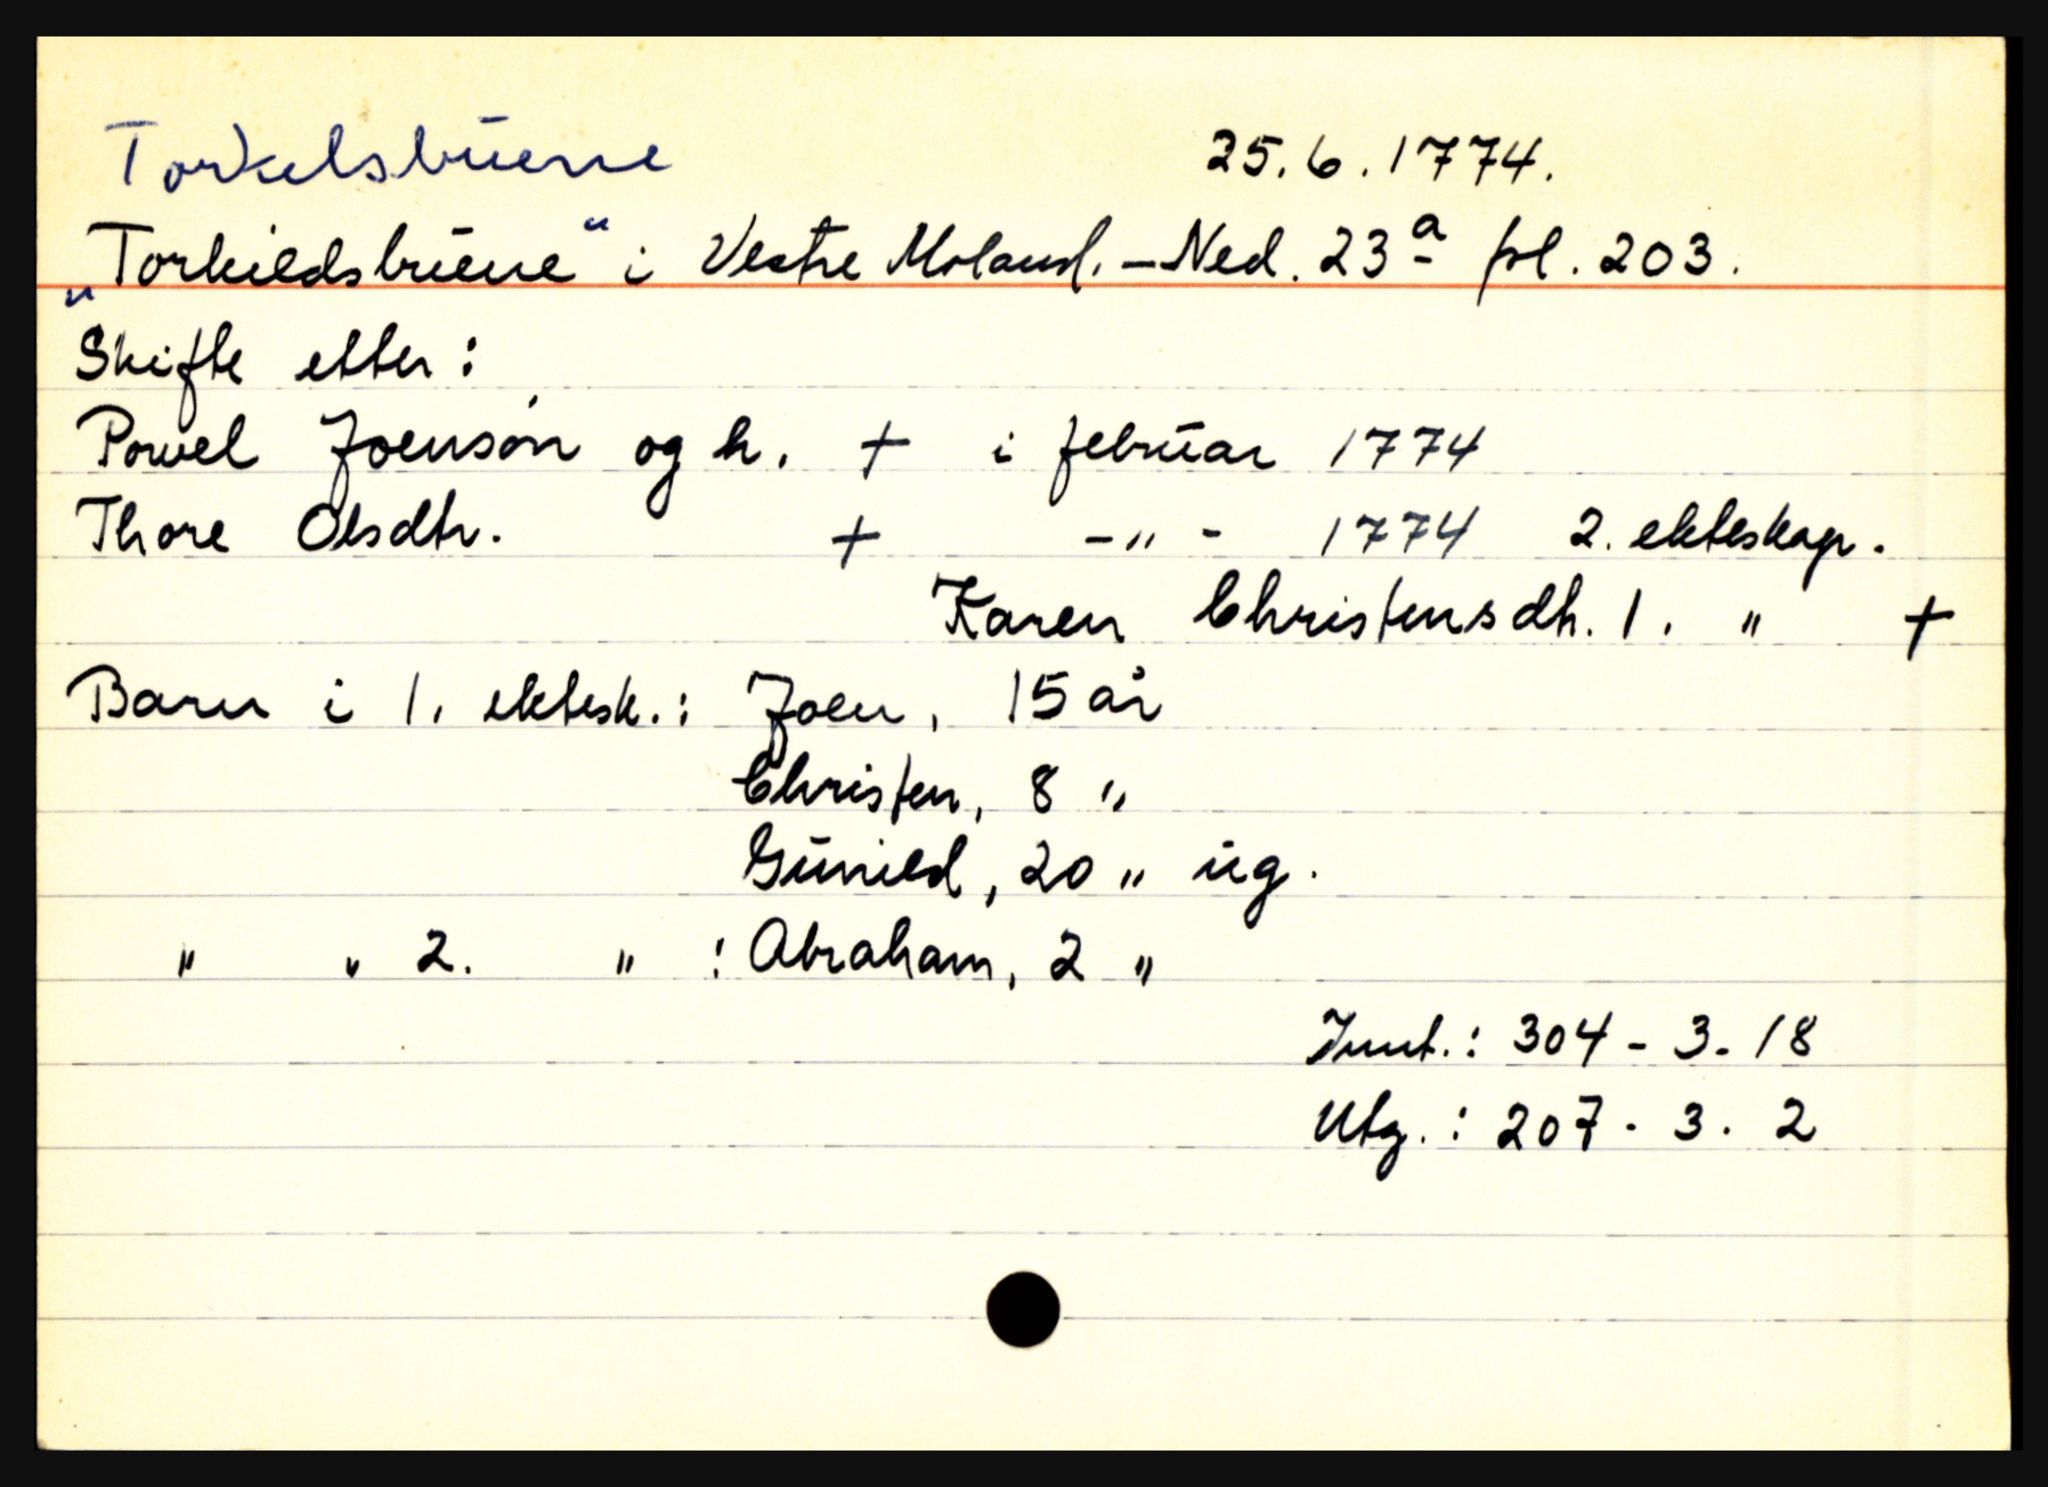 Torkelsbuene 25.6.1774.
„Torkildsbuene“ i Vestre Moland. - Ned. 23a fol. 203.
Skifte etter:
Powel Joensøn og h. + i februar 1774
Thore Olsdtr. + -„- 1774 2. ekteskap.
Karen Christensdtr. 1. „ +
Barn i 1. ektesk.: Joen, 15 år
Christen, 8 „
Gunild, 20 „ ug.
„ „ 2. „ : Abraham, 2 „
Innt.: 304 - 3 - 18
Utg.: 207 - 3 - 2